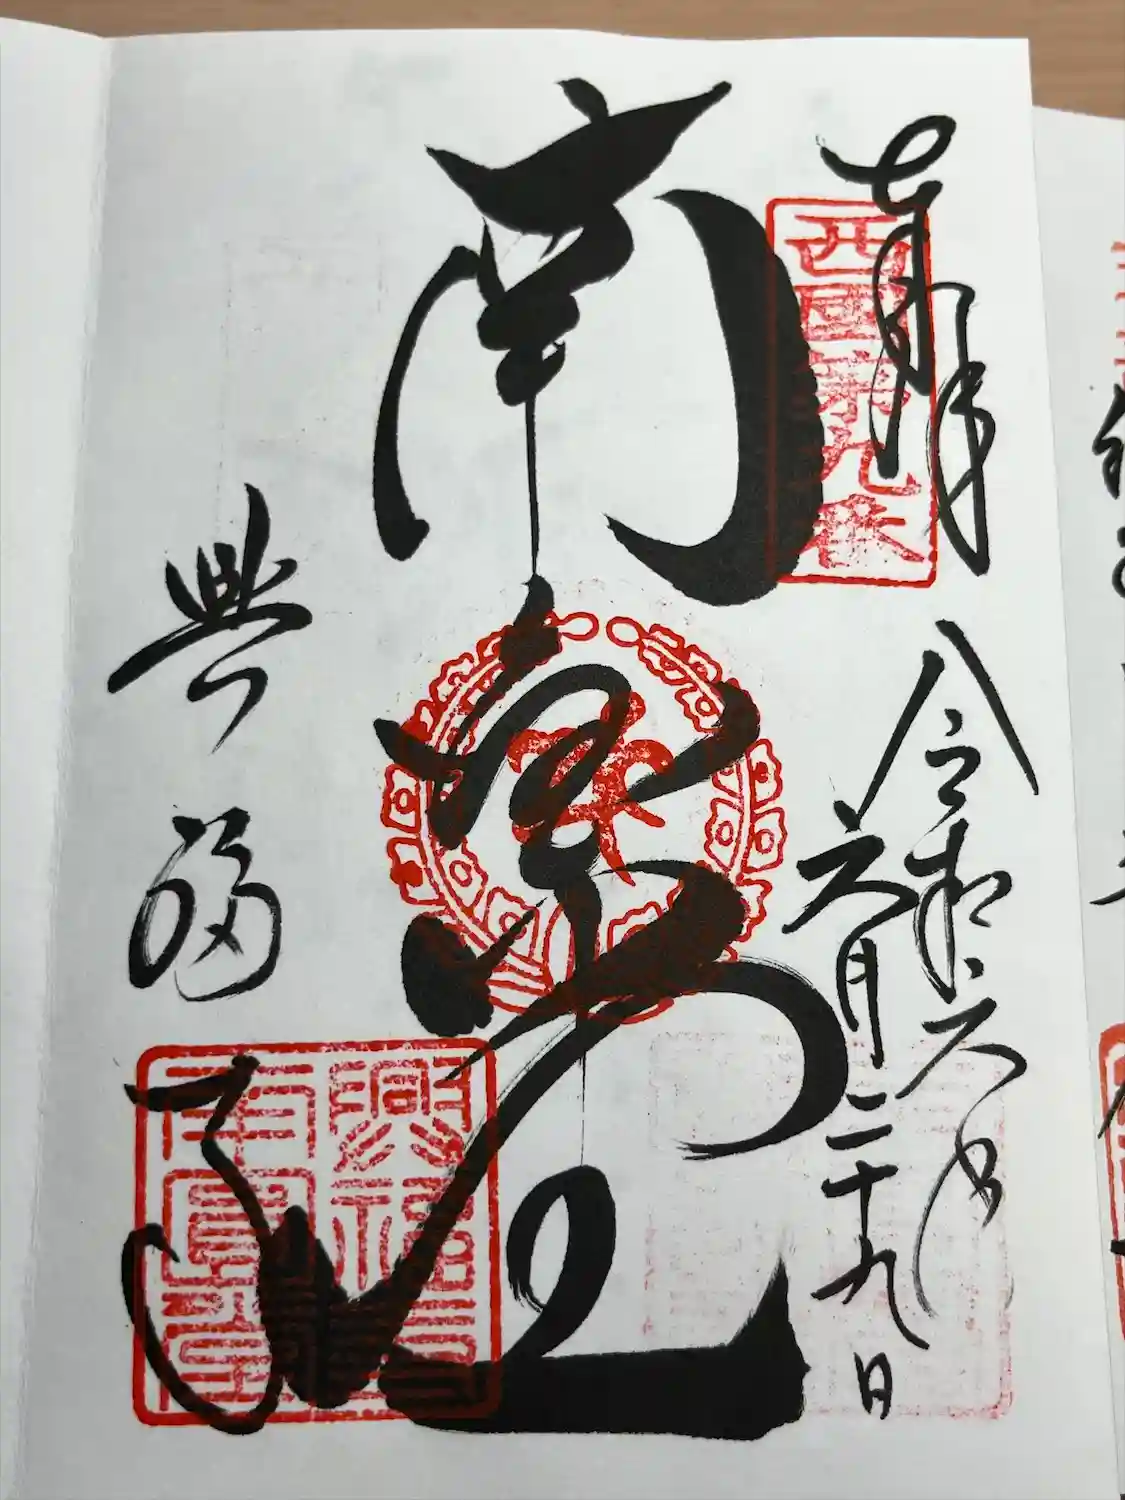 奉拝
西國第九番
令和六年
六月二十九日
南円堂
興福寺
興福寺
南円堂